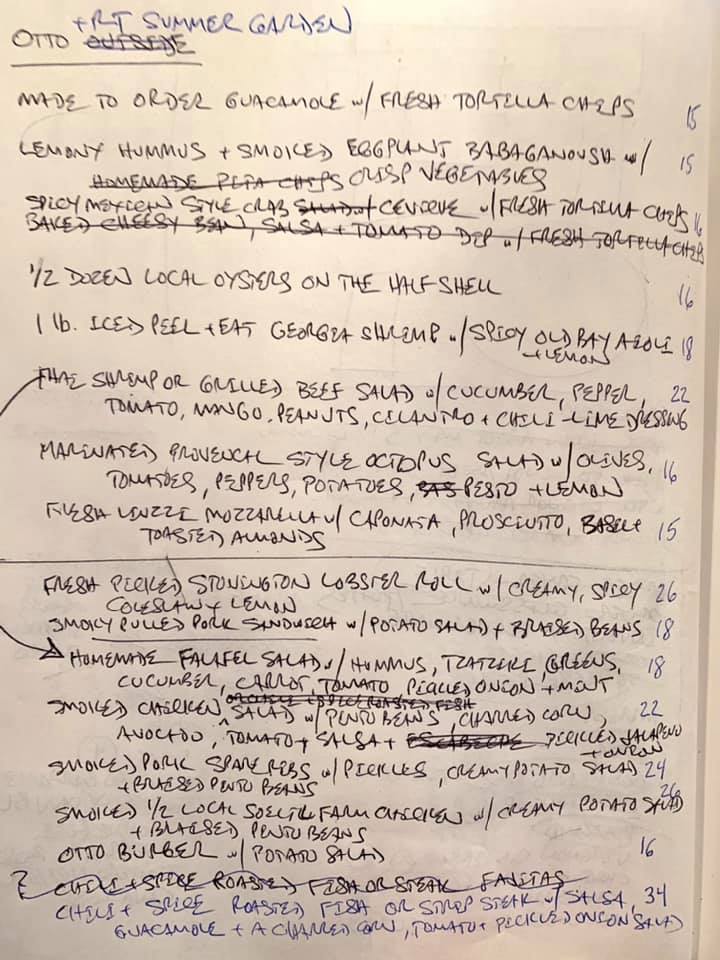 + RT SUMMER GARDEN
OTTO OUTSIDE
MADE TO ORDER GUACAMOLE w/ FRESH TORTILLA CHIPS 15
LEMONY HUMMUS + SMOKED EGGPLANT BABAGANOUSH w/ 15
HOMEMADE PITA CHIPS CRISP VEGETABLES
SPICY MEXICAN STYLE CRAB SALAD w/ CEVICHE w/ FRESH TORTILLA CHIPS 16
BAKED CHEESY BEAN, SALSA + TOMATO DIP w/ FRESH TORTILLA CHIPS
1/2 DOZEN LOCAL OYSTERS ON THE HALF SHELL 16
1 lb. ICED PEEL + EAT GEORGIA SHRIMP w/ SPICY OLD BAY AIOLI 18
+ LEMON
THAI SHRIMP OR GRILLED BEEF SALAD w/ CUCUMBER, PEPPER, 22
TOMATO, MANGO, PEANUTS, CILANTRO + CHILI-LIME DRESSING
MARINATED PROVENCAL STYLE OCTOPUS SALAD w/ OLIVES, 16
TOMATOES, PEPPERS, POTATOES, BAS PESTO + LEMON
FRESH MOZZARELLA w/ CAPONATA, PROSCIUTTO, BASIL + 15
TOASTED ALMONDS
FRESH PICKED STONINGTON LOBSTER ROLL w/ CREAMY, SPICY 26
COLESLAW + LEMON
SMOKY PULLED PORK SANDWICH w/ POTATO SALAD + BRAISED BEANS 18
HOMEMADE FALAFEL SALAD w/ HUMMUS, TZATZIKI, GREENS, 18
CUCUMBER, CARROT, TOMATO PICKLED ONION + MINT
OR CHILI + SPICE ROASTED FISH
SMOKED CHICKEN SALAD w/ PINTO BEANS, CHARRED CORN, 22
AVOCADO, TOMATO + SALSA + ESCABECHE PICKLED JALAPENO
+ ONION
SMOKED PORK SPARE RIBS w/ PICKLES, CREAMY POTATO SALAD 24
+ BRAISED PINTO BEANS
26
SMOKED 1/2 LOCAL FARM CHICKEN w/ CREAMY POTATO SALAD
+ BRAISED PINTO BEANS
OTTO BURGER w/ POTATO SALAD 16
? CHILI + SPICE ROASTED FISH OR STEAK FAJITAS
CHILI + SPICE ROASTED FISH OR STRIP STEAK w/ SALSA, 34
GUACAMOLE + A CHARRED CORN, TOMATO + PICKLED ONION SALAD